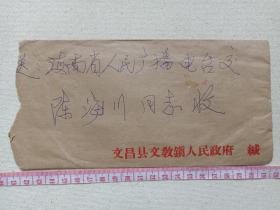 送:海南省人民广播电台交
陈海川同志收
文昌县文教镇人民政府 缄